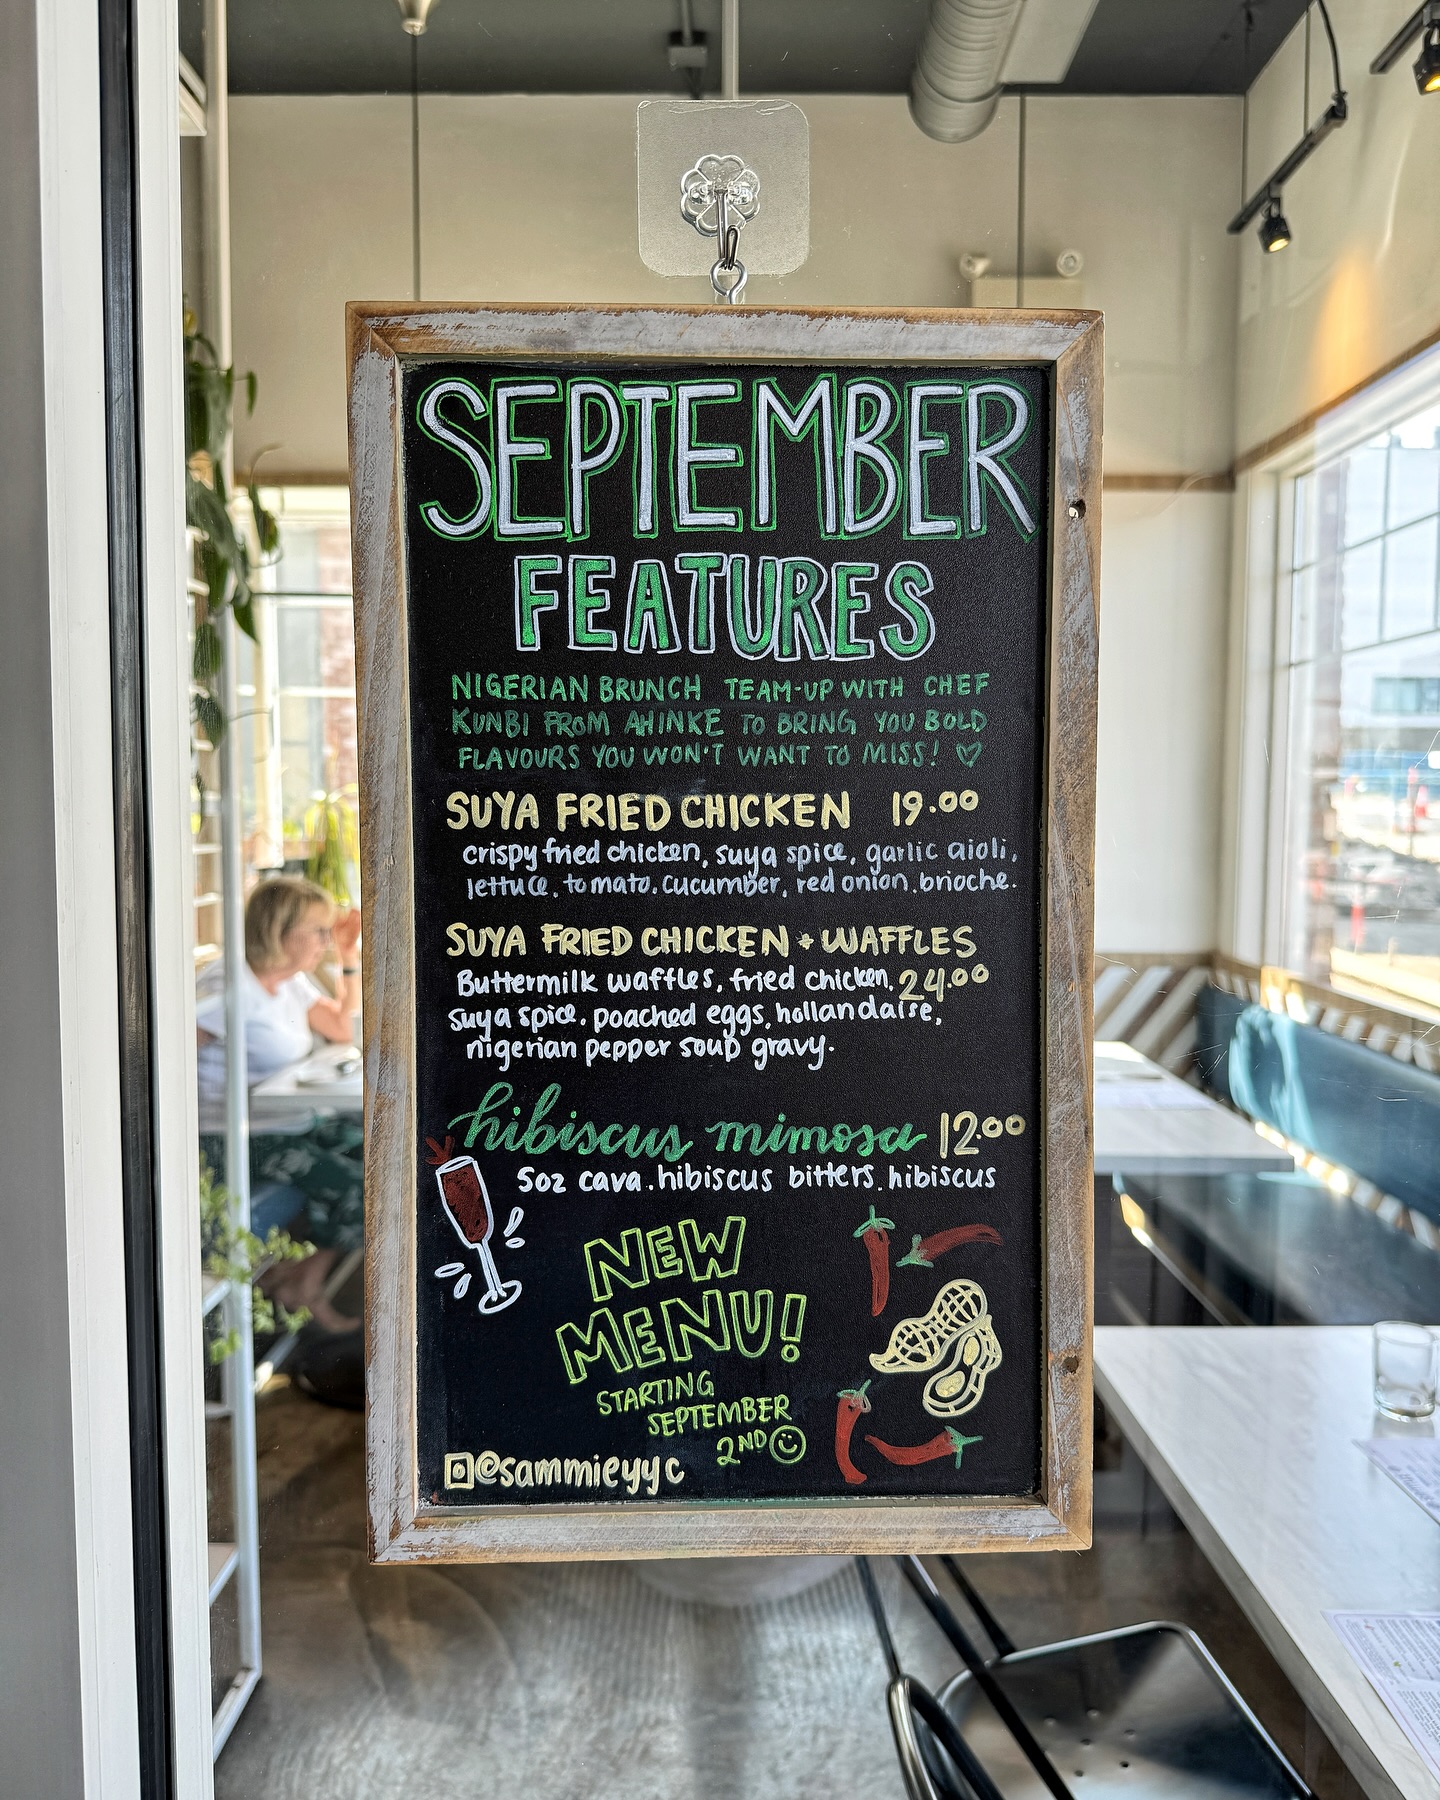 SEPTEMBER
FEATURES
NIGERIAN BRUNCH TEAM-UP WITH CHEF
KUNBI FROM AHINKE TO BRING YOU BOLD
FLAVOURS YOU WON'T WANT TO MISS! ♡
SUYA FRIED CHICKEN 19.00
crispy fried chicken, suya spice, garlic aioli,
lettuce, tomato, cucumber, red onion, brioche.
SUYA FRIED CHICKEN + WAFFLES
Buttermilk waffles, fried chicken, 24.00
suya spice, poached eggs, hollandaise,
nigerian pepper soup gravy.
hibiscus mimosa 12.00
5oz cava. hibiscus bitters. hibiscus
NEW
MENU!
STARTING
SEPTEMBER
2ND
@sammieyyc